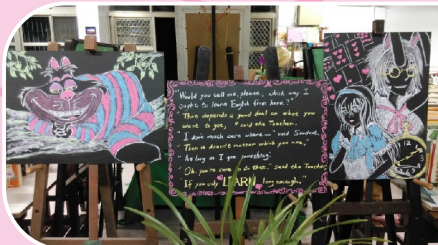 "Would you tell me, please, which way I
ought to learn English from here?"
"That depends a good deal on where you
want to get," said the Teacher.
"I don't much care where—" said Student,
"Then it doesn't matter which you
"As long as I get something."
"Oh, you're sure to do that," said the Teacher
If you only LEARN long enough."